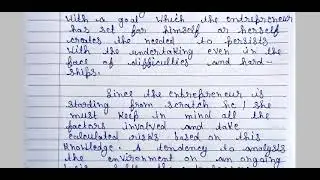 With a goal which the entrepreneur
has set for himself or herself
creates the needed to persists
With the undertaking even in the
face of difficulties and hard-
ships.
Since the entrepreneur is
starting from scratch he / she
must keep in mind all the
factors involved and take
calculated risks based on this
Knowledge. A tendency to analysis
the environment on an ongoing